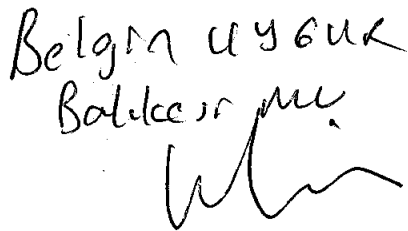 Belgin UYGUR
Balıkesir Mv.